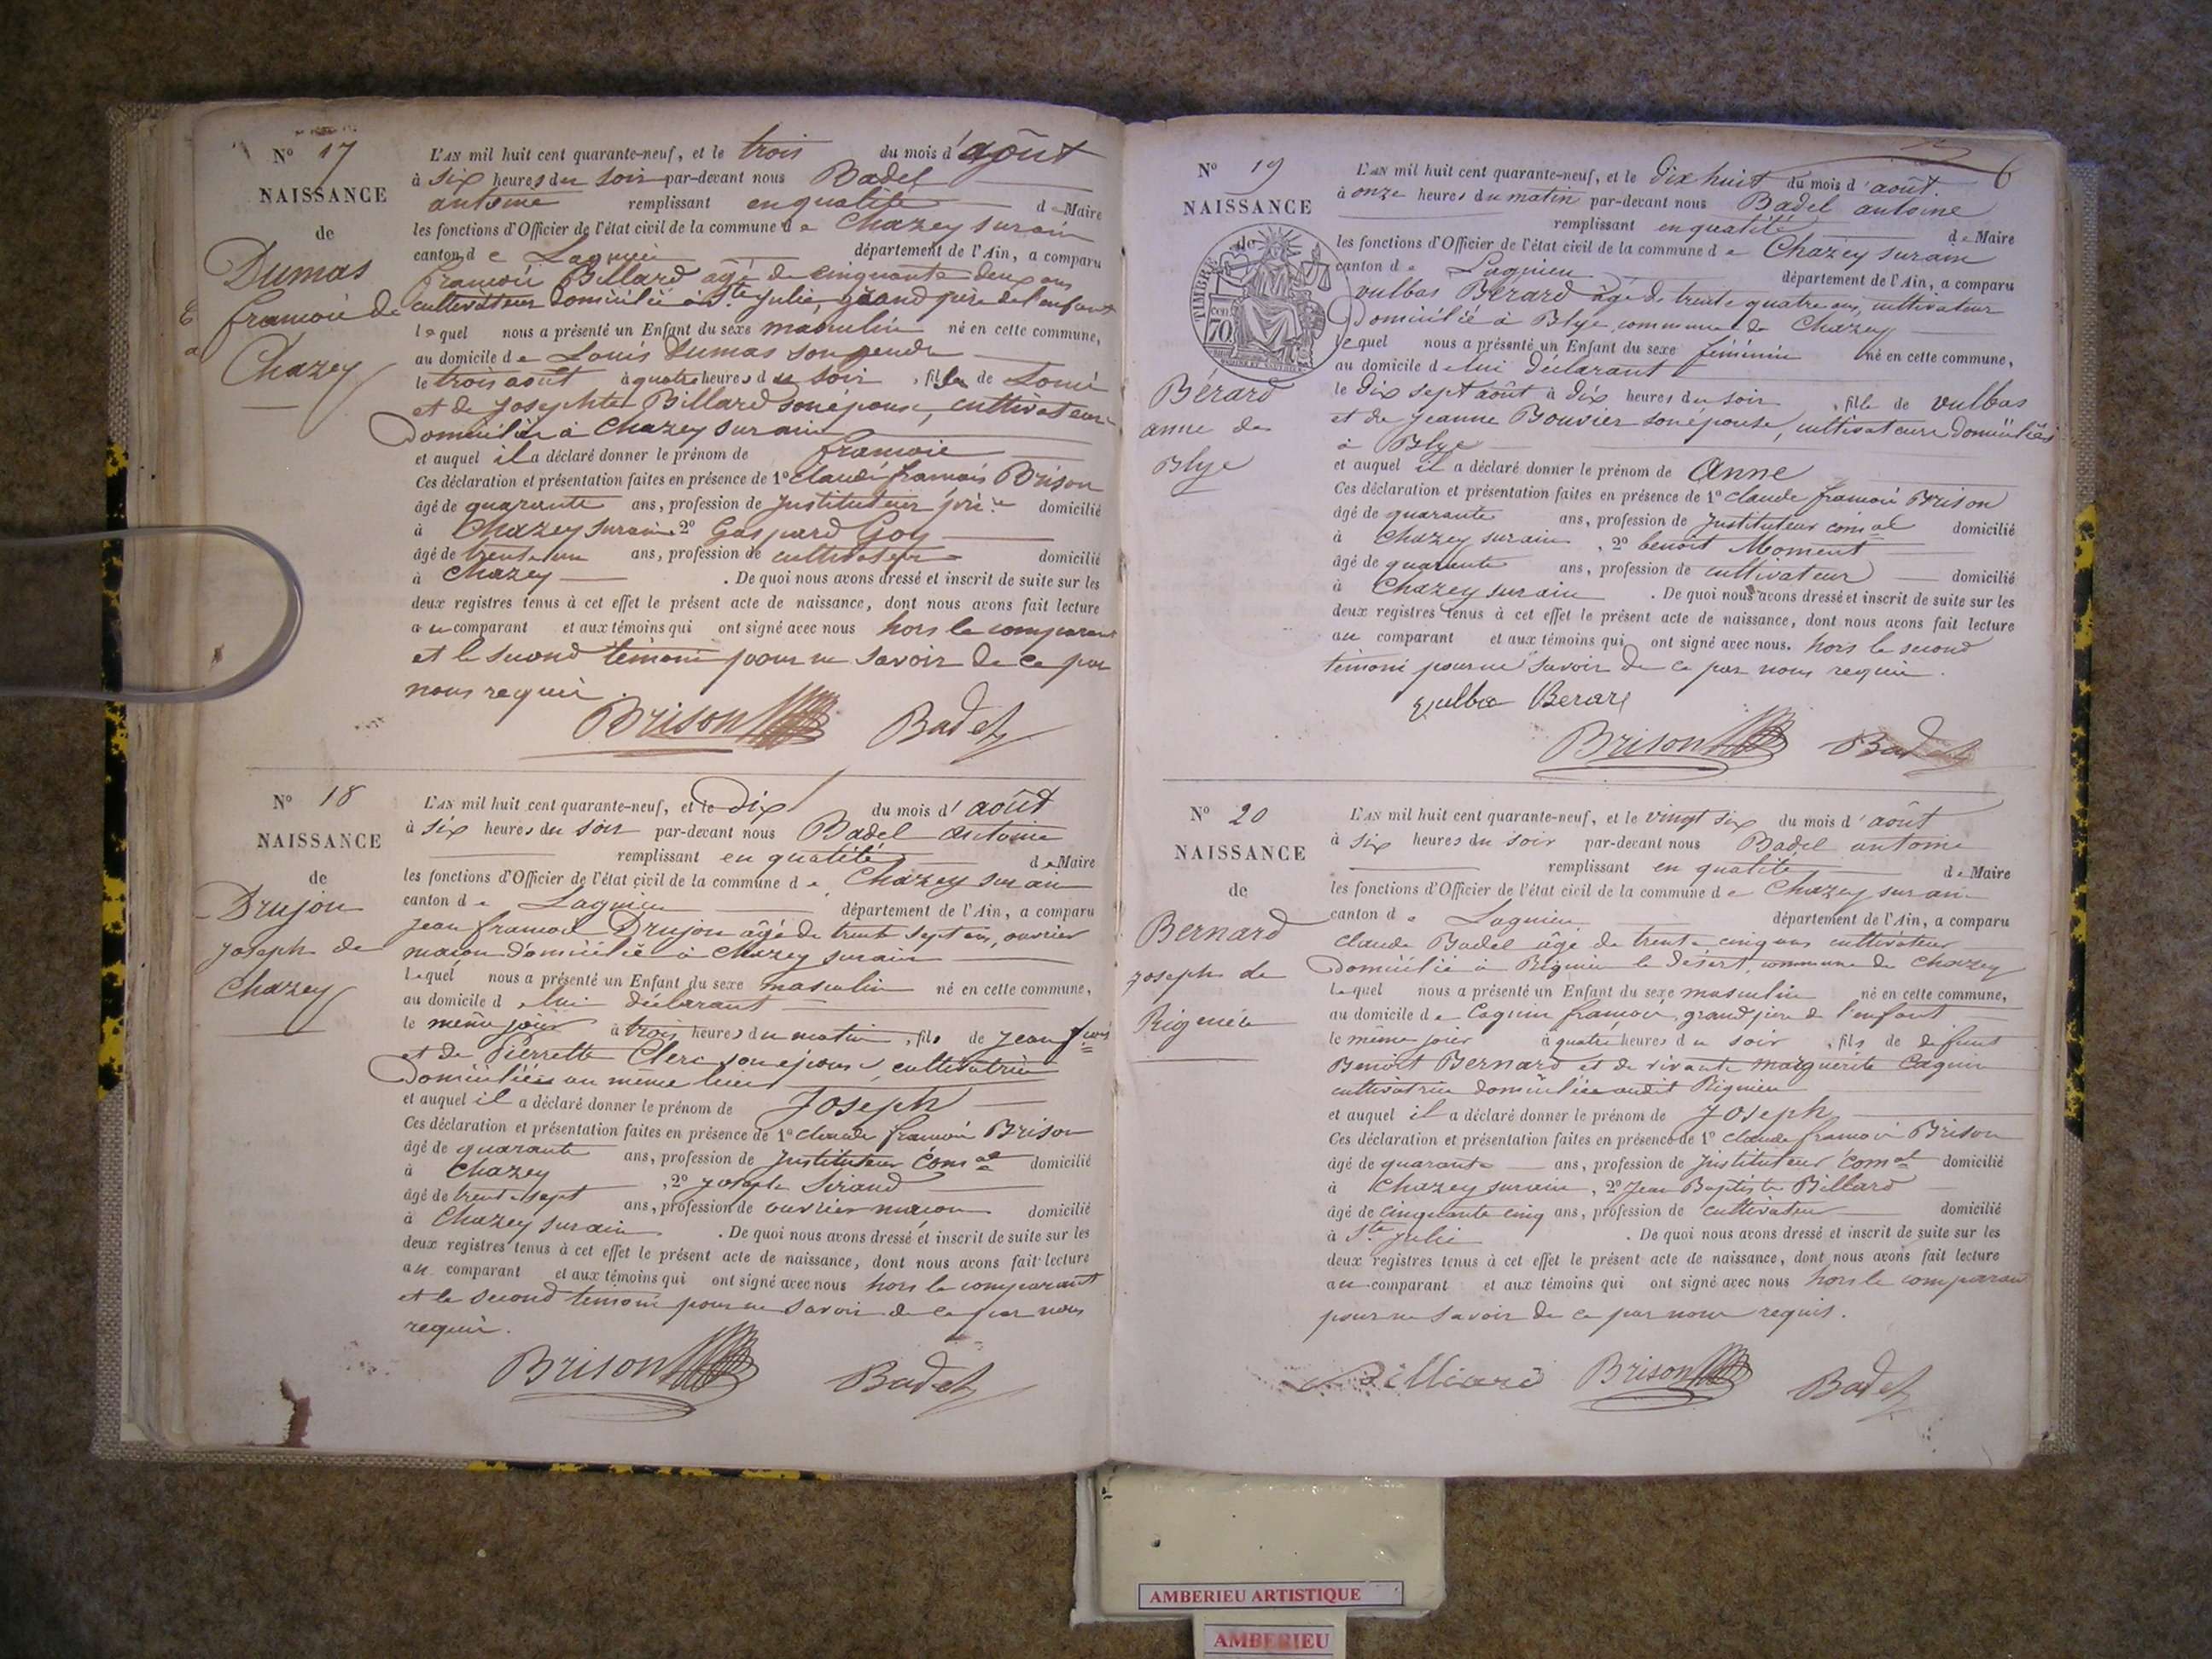 N° 17
NAISSANCE
de
Dumas
francois de
Chazey
L'AN mil huit cent quarante-neuf, et le trois du mois d'août
à six heures du soir par-devant nous Badel
antoine remplissant en qualité de Maire
les fonctions d'Officier de l'état civil de la commune de Chazey sur ain
canton de Lagnieu département de l'Ain, a comparu
francois Billard âgé de cinquante deux ans
cultivateur domicilié à Ste Julie, grand père de l'enfant
lequel nous a présenté un Enfant du sexe masculin né en cette commune,
au domicile de Louis Dumas son gendre
le trois août à quatre heures du soir, fils de Louis
et de Josephte Billard son épouse, cultivateurs
domiciliés à Chazey sur ain
et auquel il a déclaré donner le prénom de francois
Ces déclaration et présentation faites en présence de 1° Claude francois Brison
âgé de quarante ans, profession de Instituteur domicilié
à Chazey sur ain 2° Gaspard Goy
âgé de trente un ans, profession de cultivateur domicilié
à Chazey. De quoi nous avons dressé et inscrit de suite sur les
deux registres tenus à cet effet le présent acte de naissance, dont nous avons fait lecture
au comparant et aux témoins qui ont signé avec nous hors le comparant
et le second témoin pour ne savoir de ce par
nous requis.
Brison Badel
N° 18
NAISSANCE
de
Drujon
joseph de
Chazey
L'AN mil huit cent quarante-neuf, et le dix du mois d'août
à six heures du soir par-devant nous Badel antoine
remplissant en qualité de Maire
les fonctions d'Officier de l'état civil de la commune de Chazey sur ain
canton de Lagnieu département de l'Ain, a comparu
jean francois Drujon âgé de trente sept ans, ouvrier
maçon domicilié à Chazey sur ain
Lequel nous a présenté un Enfant du sexe masculin né en cette commune,
au domicile de lui déclarant
le même jour à trois heures du matin, fils de jean frçois
et de Pierrette Clerc son épouse, cultivatrice
domiciliés au même lieu
et auquel il a déclaré donner le prénom de Joseph
Ces déclaration et présentation faites en présence de 1° claude francois Brison
âgé de quarante ans, profession de Instituteur comal domicilié
à Chazey, 2° joseph Sirand
âgé de trente sept ans, profession de ouvrier maçon domicilié
à Chazey sur ain. De quoi nous avons dressé et inscrit de suite sur les
deux registres tenus à cet effet le présent acte de naissance, dont nous avons fait lecture
au comparant et aux témoins qui ont signé avec nous hors le comparant
et le second témoin pour ne savoir de ce par nous
requis.
Brison Badel
N° 19
NAISSANCE
de
TIMBRE
70
Bérard
anne de
Blye
L'AN mil huit cent quarante-neuf, et le dix huit du mois d'août.
à onze heures du matin par-devant nous Badel antoine
remplissant en qualité de Maire
les fonctions d'Officier de l'état civil de la commune de Chazey sur ain
canton de Lagnieu département de l'Ain, a comparu
vulbas Bérard âgé de trente quatre ans, cultivateur
domicilié à Blye, commune de Chazey
lequel nous a présenté un Enfant du sexe féminin né en cette commune,
au domicile de lui déclarant
le dix sept août à dix heures du soir, fille de vulbas
et de jeanne Bouvier son épouse, cultivateurs domiciliés
à Blye
et auquel il a déclaré donner le prénom de anne
Ces déclaration et présentation faites en présence de 1° claude francois Brison
âgé de quarante ans, profession de Instituteur comal domicilié
à Chazey sur ain, 2° benoit Moment
âgé de quarante ans, profession de cultivateur domicilié
à Chazey sur ain. De quoi nous avons dressé et inscrit de suite sur les
deux registres tenus à cet effet le présent acte de naissance, dont nous avons fait lecture
au comparant et aux témoins qui ont signé avec nous. hors le second
témoin pour ne savoir de ce par nous requis.
Berard
Brison Badel
N° 20
NAISSANCE
de
Bernard
joseph de
Rignieu
L'AN mil huit cent quarante-neuf, et le vingt six du mois d'août
à six heures du soir par-devant nous Badel antoine
remplissant en qualité de Maire
les fonctions d'Officier de l'état civil de la commune de Chazey sur ain
canton de Lagnieu département de l'Ain, a comparu
claude Badel âgé de trente cinq ans cultivateur
domicilié à Rignieu le désert, commune de Chazey
Lequel nous a présenté un Enfant du sexe masculin né en cette commune,
au domicile de Caguin francois, grand père de l'enfant
le même jour à quatre heures du soir, fils de défunt
Benoit Bernard et de vivante marguerite Caguin
cultivatrice domiciliée audit Rignieu
et auquel il a déclaré donner le prénom de joseph
Ces déclaration et présentation faites en présence de 1° claude francois Brison
âgé de quarante ans, profession de Instituteur comal domicilié
à Chazey sur ain, 2° Jean Baptiste Billard
âgé de cinquante cinq ans, profession de cultivateur domicilié
à Ste Julie. De quoi nous avons dressé et inscrit de suite sur les
deux registres tenus à cet effet le présent acte de naissance, dont nous avons fait lecture
au comparant et aux témoins qui ont signé avec nous hors le comparant
pour ne savoir de ce par nous requis.
Billiard Brison Badel
AMBERIEU ARTISTIQUE
AMBERIEU